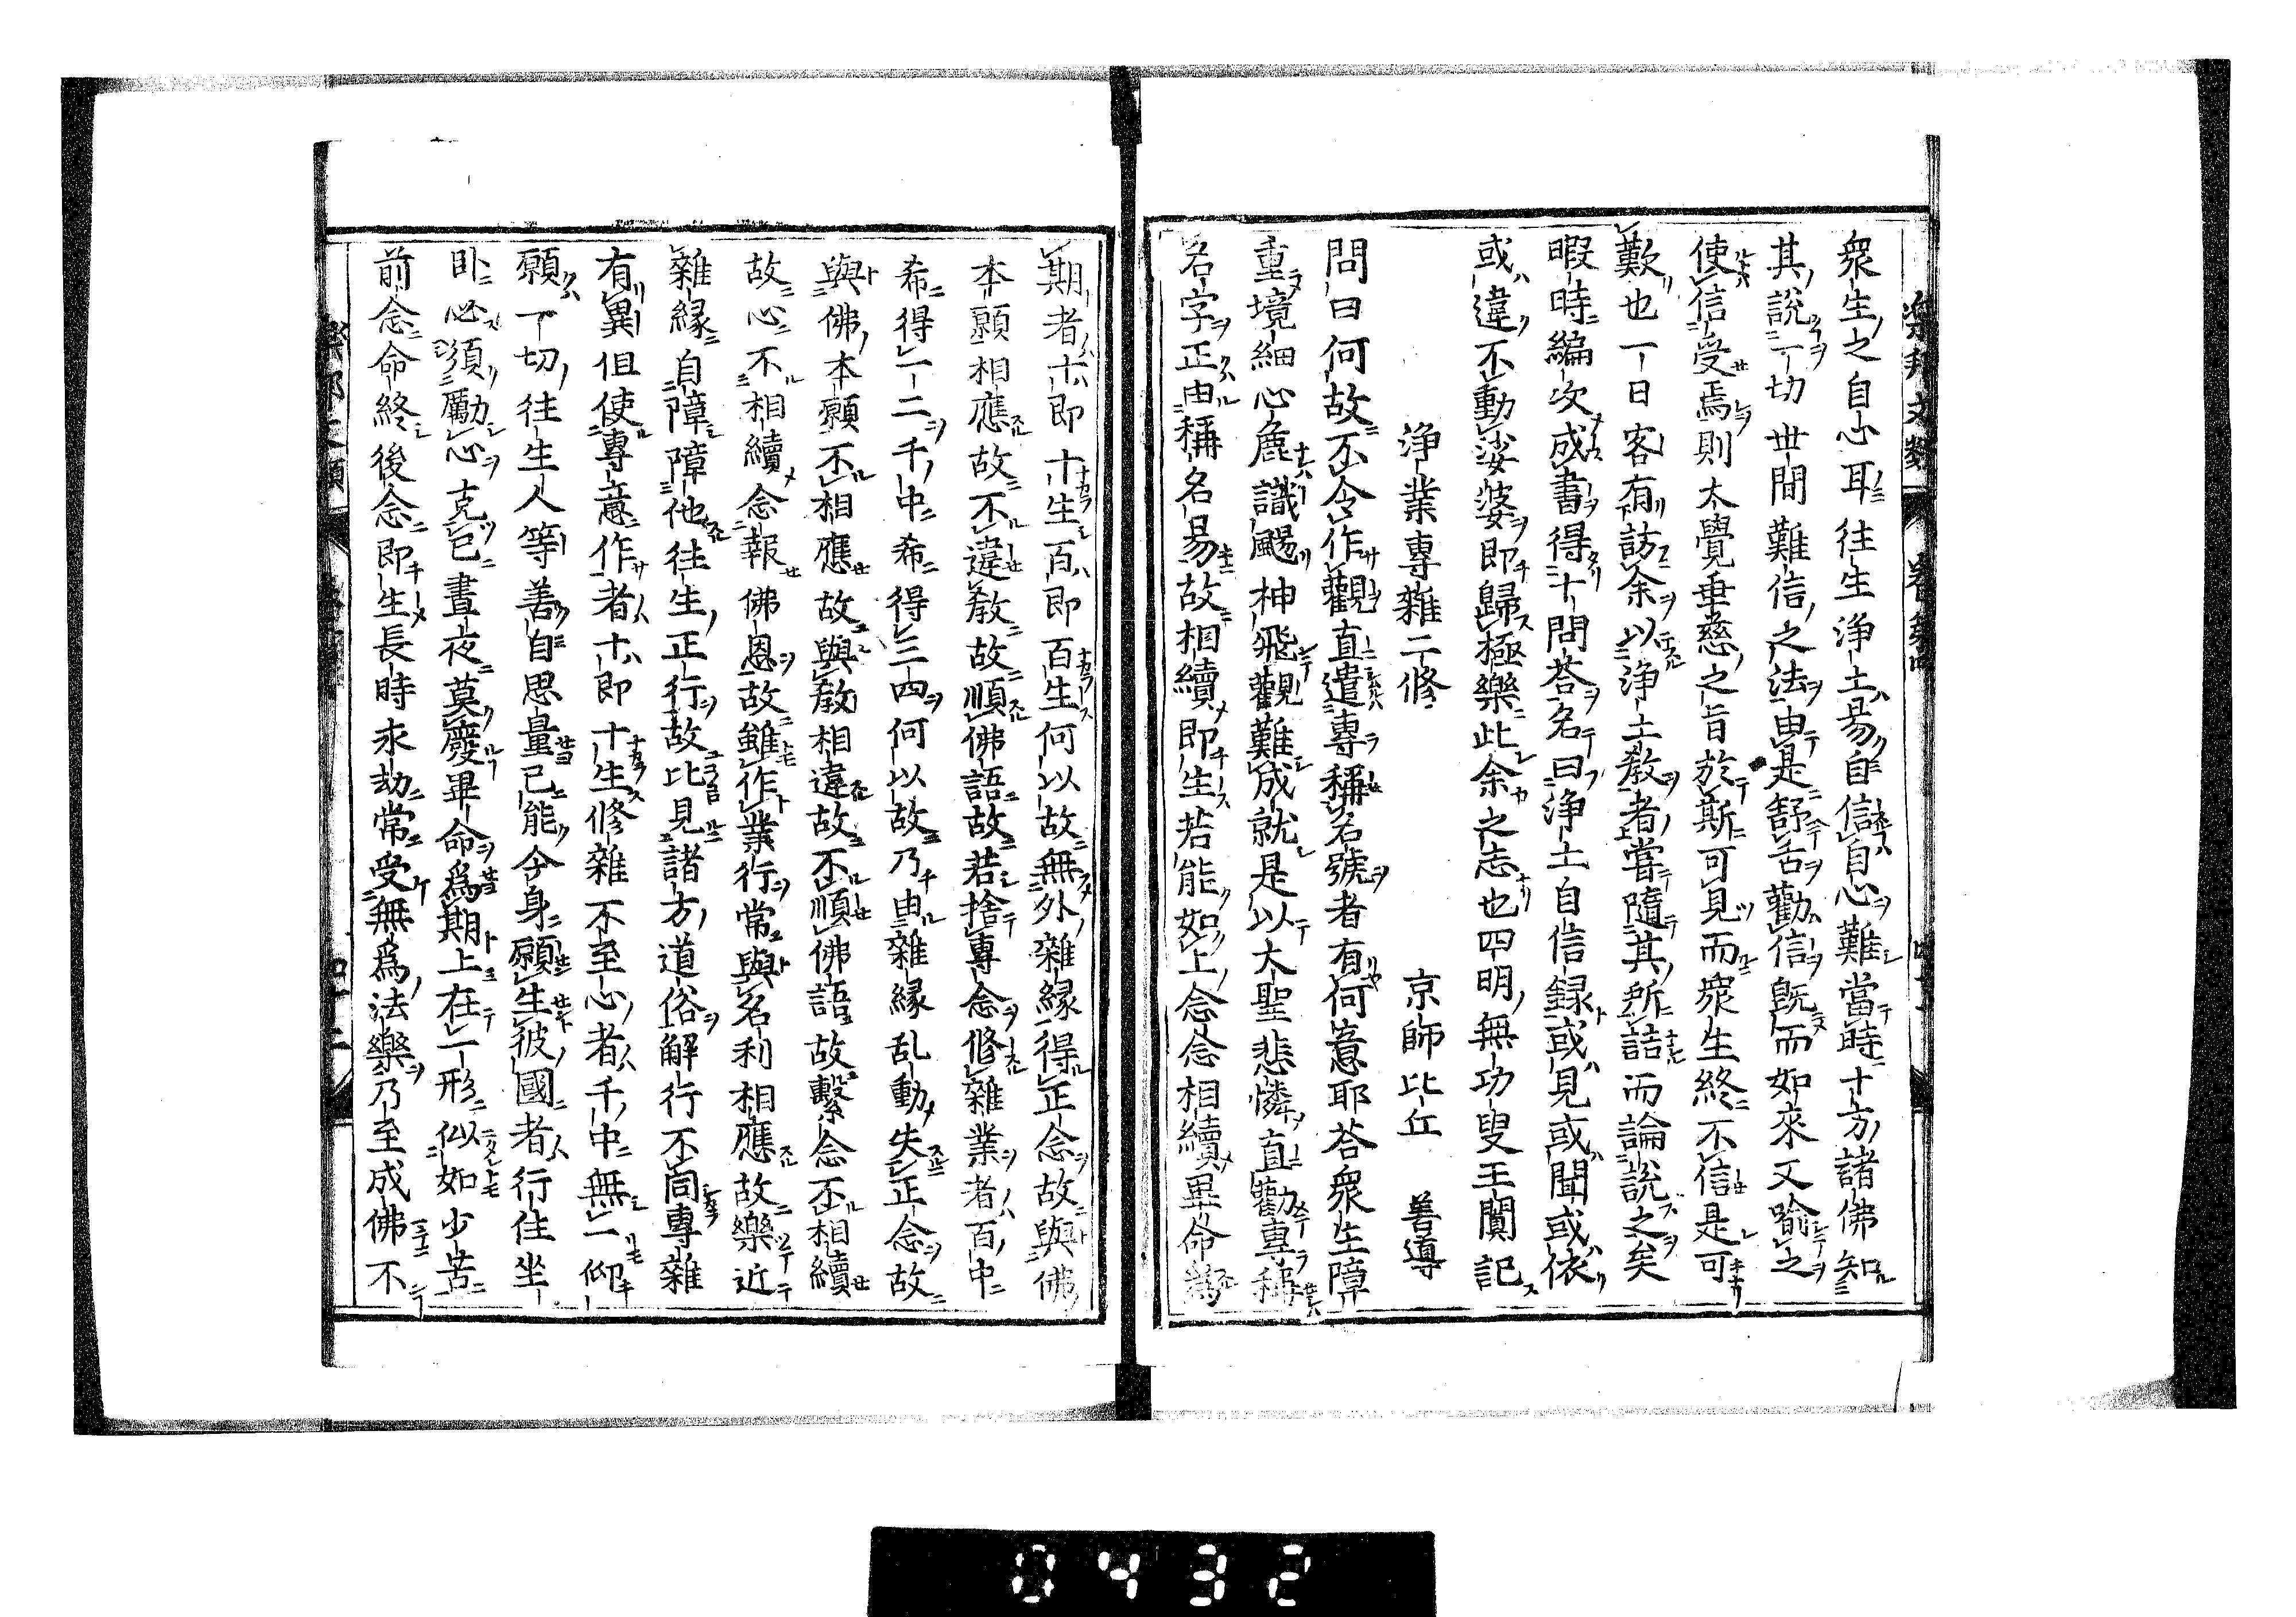 衆生之自心耳往生浄土易自信自心難當時十方諸佛知
其說一切世間難信之法由是舒舌勸信既而如來又喻之
使信受焉則大覺垂慈之旨於斯可見而衆生終不信是可
歎也一日客有訪余以浄土教者嘗隨其所詰而論說之矣
暇時編次成書得十問荅名曰浄土自信録或見或聞或依
或違不動娑婆即歸極樂此余之志也四明無功叟王闐記
浄業專雜二修　京師比丘　善導
問曰何故不令作觀直遣專稱名號者有何意耶荅衆生障
重境細心麁識颺神飛觀難成就是以大聖悲憐直勸專稱
名字正由稱名易故相續即生若能如上念念相續畢命爲
期者十即十生百即百生何以故無外雜縁得正念故與佛
本願相應故不違教故順佛語故若捨專念修雜業者百中
希得一二千中希得三四何以故乃由雜縁乱動失正念故
與佛本願不相應故與教相違故不順佛語故繫念不相續
故心不相續念報佛恩故雖作業行常與名利相應故樂近
雜縁自障障他往生正行故比見諸方道俗解行不同專雜
有異但使專意作者十即十生修雜不至心者千中無一仰
願一切往生人等善自思量已能今身願生彼國者行住坐
卧必須勵心克已晝夜莫廢畢命爲期上在一形似如少苦
前念命終後念即生長時永劫常受無爲法樂乃至成佛不